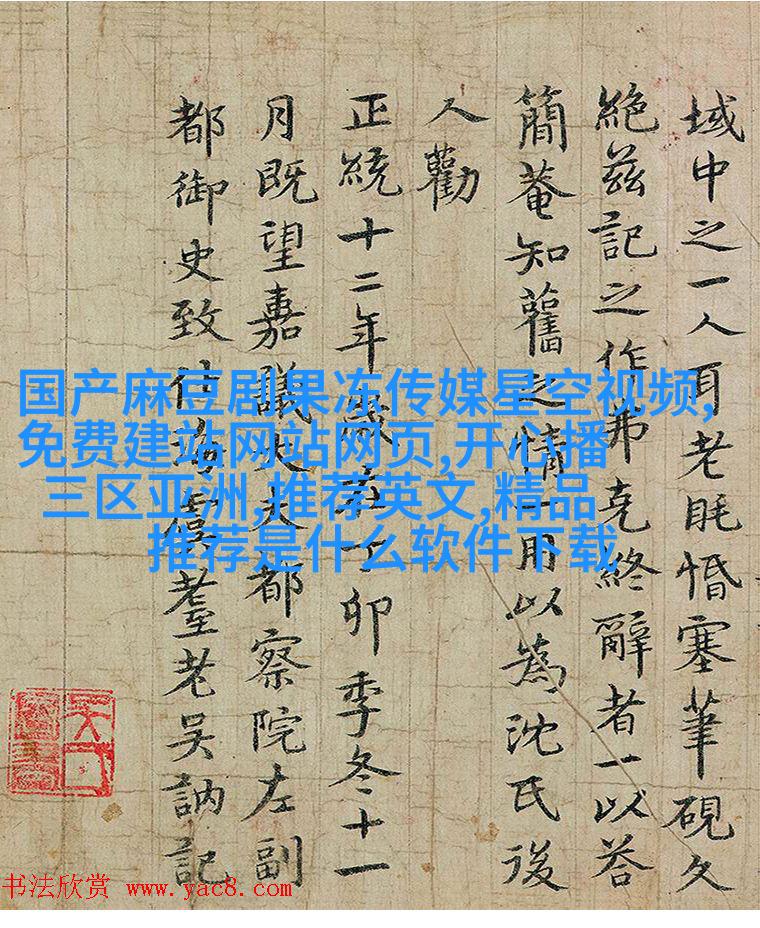 域中之一人耳老眊惛塞筆硯久
絶茲記之作弗克終辭者一以荅
簡菴知舊之情一用以為沈氏後
人勸
正統十二年歲在丁卯季冬十一
月既望嘉議大夫都察院左副
都御史致仕海虞耋老吳訥記
国产麻豆剧果冻传媒星空视频,
免费建站网站网页,开心播
三区亚洲,推荐英文,精品
推荐是什么软件下载
书法欣赏 www.yac8.com